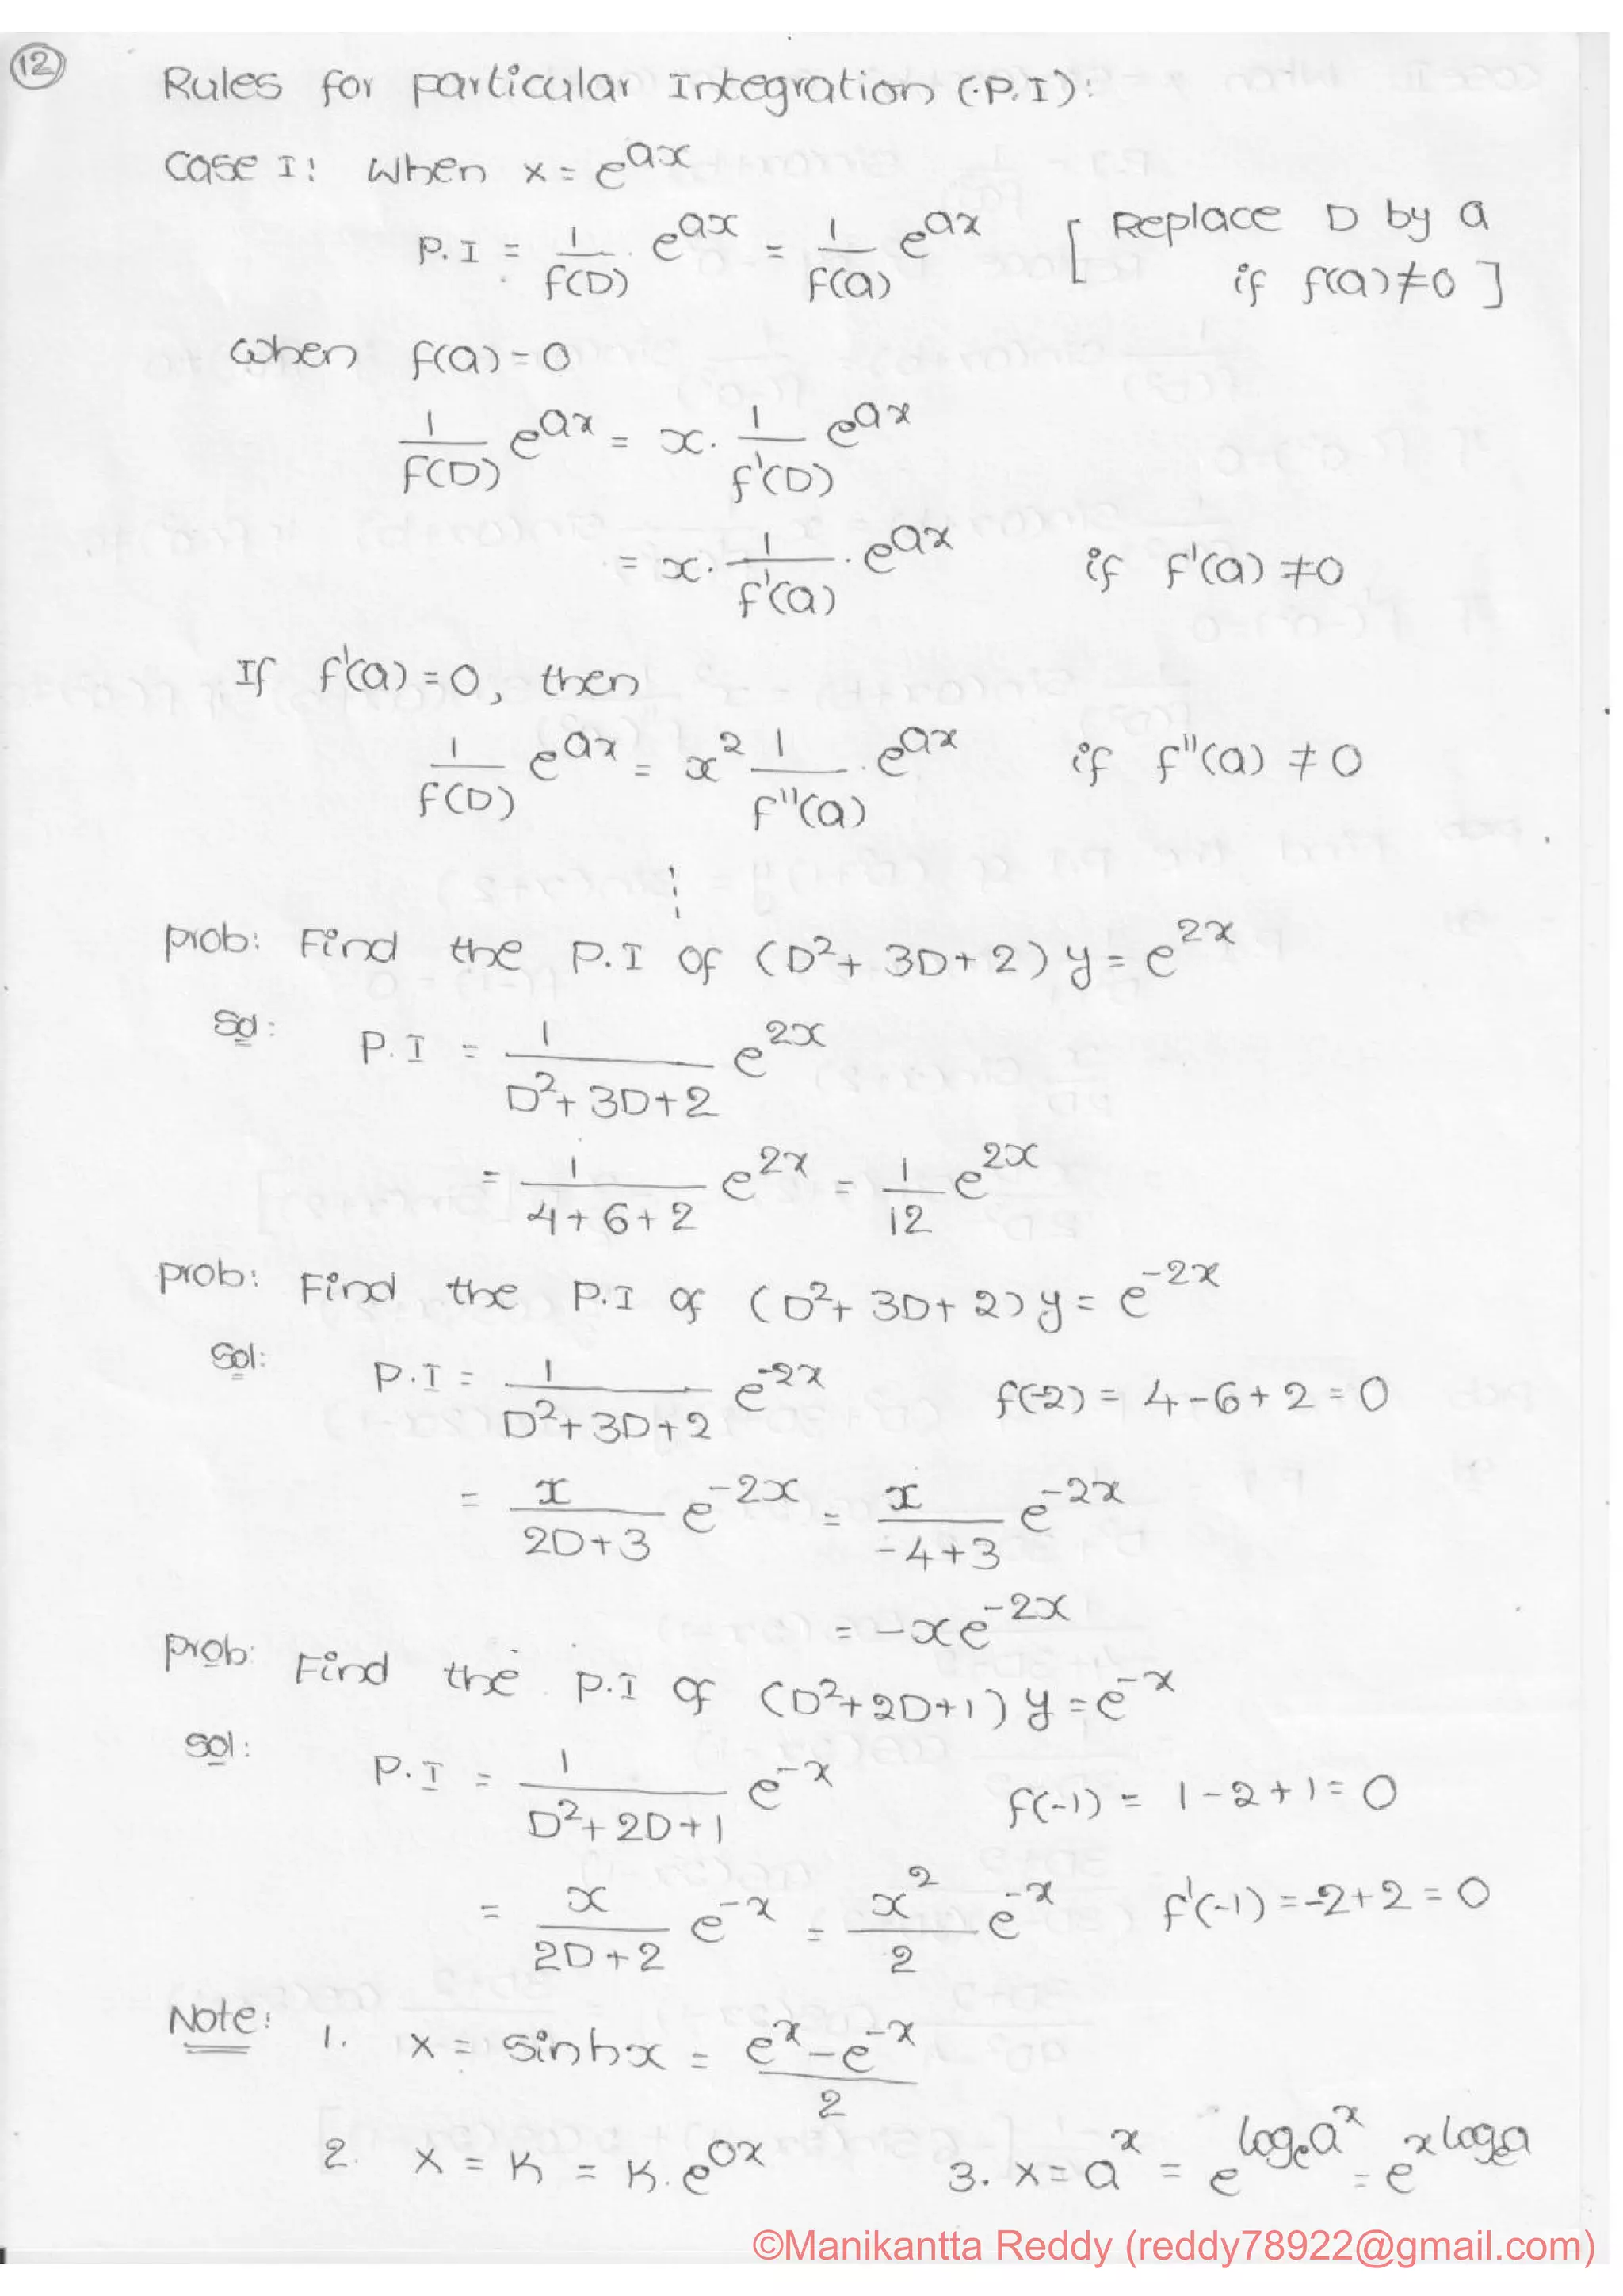 12
Rules for particular Integration (.P.I):
Case I: When x = e^{ax}
P.I = \frac{1}{f(D)} . e^{ax} = \frac{1}{f(a)} e^{ax} [ Replace D by a
if f(a)≠0 ]
when f(a)=0
\frac{1}{f(D)} e^{ax} = x. \frac{1}{f'(D)} e^{ax}
= x. \frac{1}{f'(a)} . e^{ax} if f'(a) ≠0
If f'(a)=0, then
\frac{1}{f(D)} e^{ax} = x^2 \frac{1}{f''(a)} . e^{ax} if f''(a) ≠ 0
⋮
prob: Find the P.I of (D^2+ 3D+2) y = e^{2x}
Sol: P.I = \frac{1}{D^2+3D+2} e^{2x}
= \frac{1}{4+6+2} e^{2x} = \frac{1}{12} e^{2x}
prob: Find the P.I of (D^2+ 3D+2)y = e^{-2x}
Sol: P.I = \frac{1}{D^2+3D+2} e^{-2x} f(-2) = 4-6+2 = 0
= \frac{x}{2D+3} e^{-2x} = \frac{x}{-4+3} e^{-2x}
= -xe^{-2x}
prob: Find the P.I of (D^2+2D+1) y = e^{-x}
Sol: P.I = \frac{1}{D^2+2D+1} e^{-x} f(-1) = 1-2+1 = 0
= \frac{x}{2D+2} e^{-x} = \frac{x^2}{2} e^{-x} f'(-1) = -2+2 = 0
Note: 1. x = sinhx = \frac{e^x-e^{-x}}{2}
2. x = K = K. e^{0x} 3. x = a^x = e^{log_e a^x} = e^{x log_e a}
©Manikantta Reddy (reddy78922@gmail.com)